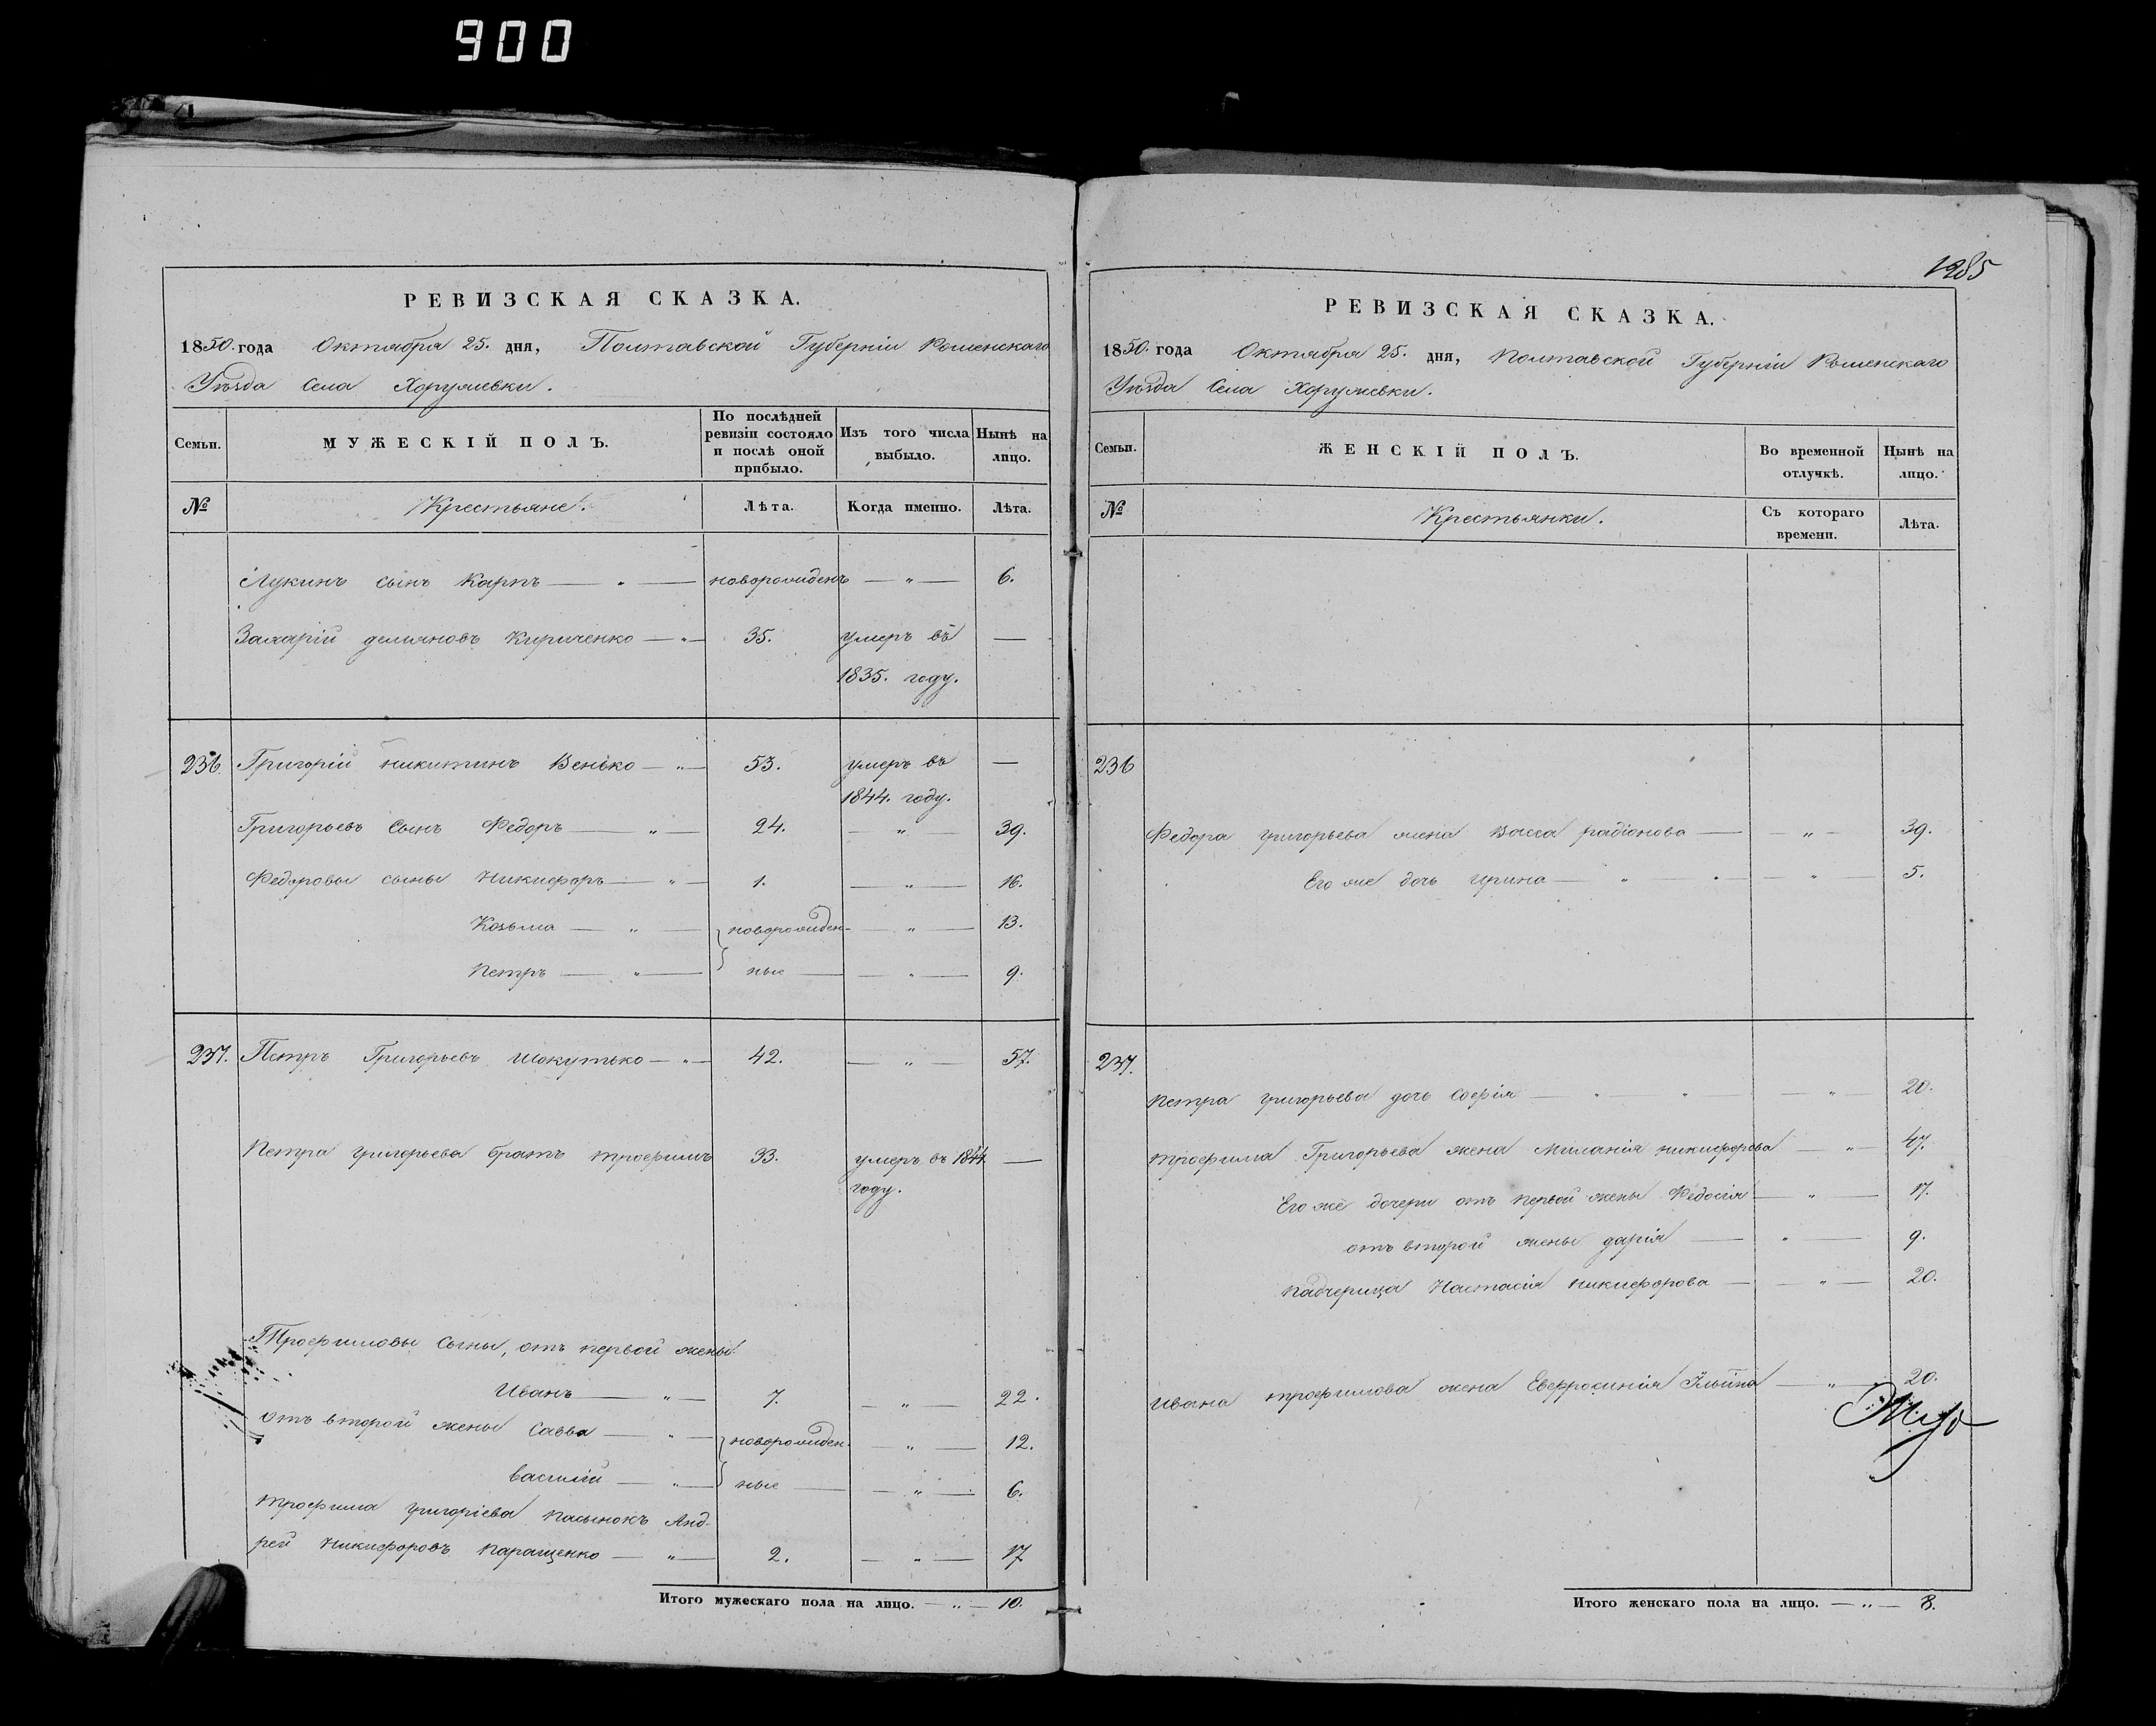 900
РЕВИЗСКАЯ СКАЗКА.
1850. года Октября 25. дня, Полтавской Губерніи Роменскаго
Уѣзда Села Хоружевки.
Семьи.
МУЖЕСКІЙ ПОЛЪ.
По послѣдней ревизіи состояло и послѣ оной прибыло.
Изъ того числа выбыло.
Нынѣ на лицо.
№ Крестьяне. Лѣта. Когда именно. Лѣта.
Лукинъ сынъ Карпъ — „ — новорожденъ — „ — 6.
Захарій демяновъ Кириченко — „ — 35. умеръ въ —
1835. году.
236. Григорій никитинъ Венько — „ — 53. умеръ въ —
1844. году.
Григорьевъ сынъ Федоръ — „ — 24. — „ 39.
Федоровы сыны Никифоръ — „ — 1. — „ — 16.
Козьма — „ — новорожден- — „ — 13.
Петръ — „ — ные — — „ — 9.
237. Петръ Григорьевъ Шокутько — „ — 42. — „ — 57.
Петра григорьева братъ трофимъ 33. умеръ въ 1844 —
году.
Трофимовы сыны, отъ первой жены
Иванъ — „ — 7. — „ — 22.
отъ второй жены Савва — „ — новорожден- — „ — 12.
василій — „ — ные — — „ — 6.
трофима григоріева пасынокъ Анд-
рей Никифоровъ паращенко — „ — 2. — „ — 17
Итого мужескаго пола на лицо. — „ — 10.
1285
РЕВИЗСКАЯ СКАЗКА.
1850. года Октября 25. дня, Полтавской Губерніи Роменскаго
Уѣзда Села Хоружевки.
Семьи.
ЖЕНСКІЙ ПОЛЪ.
Во временной отлучкѣ.
Нынѣ на лицо.
№ Крестьянки. Съ котораго времени. Лѣта.
236
Федора григорьева жена васса радіонова — — „ — 39.
Его же дочь ирина — „ — „ — — „ — 5.
237.
петра григорьева дочь софія — „ — „ — — „ — 20.
трофима Григорьева жена миланія никифорова — „ — 47.
Его же дочери отъ первой жены Федосія — „ — 17.
отъ второй жены дарія — „ — 9.
падчерица Настасія никифорова — — „ — 20.
ивана трофимова жена Евфросинія Ильина — „ — 20.
Итого женскаго пола на лицо. — „ — 8.